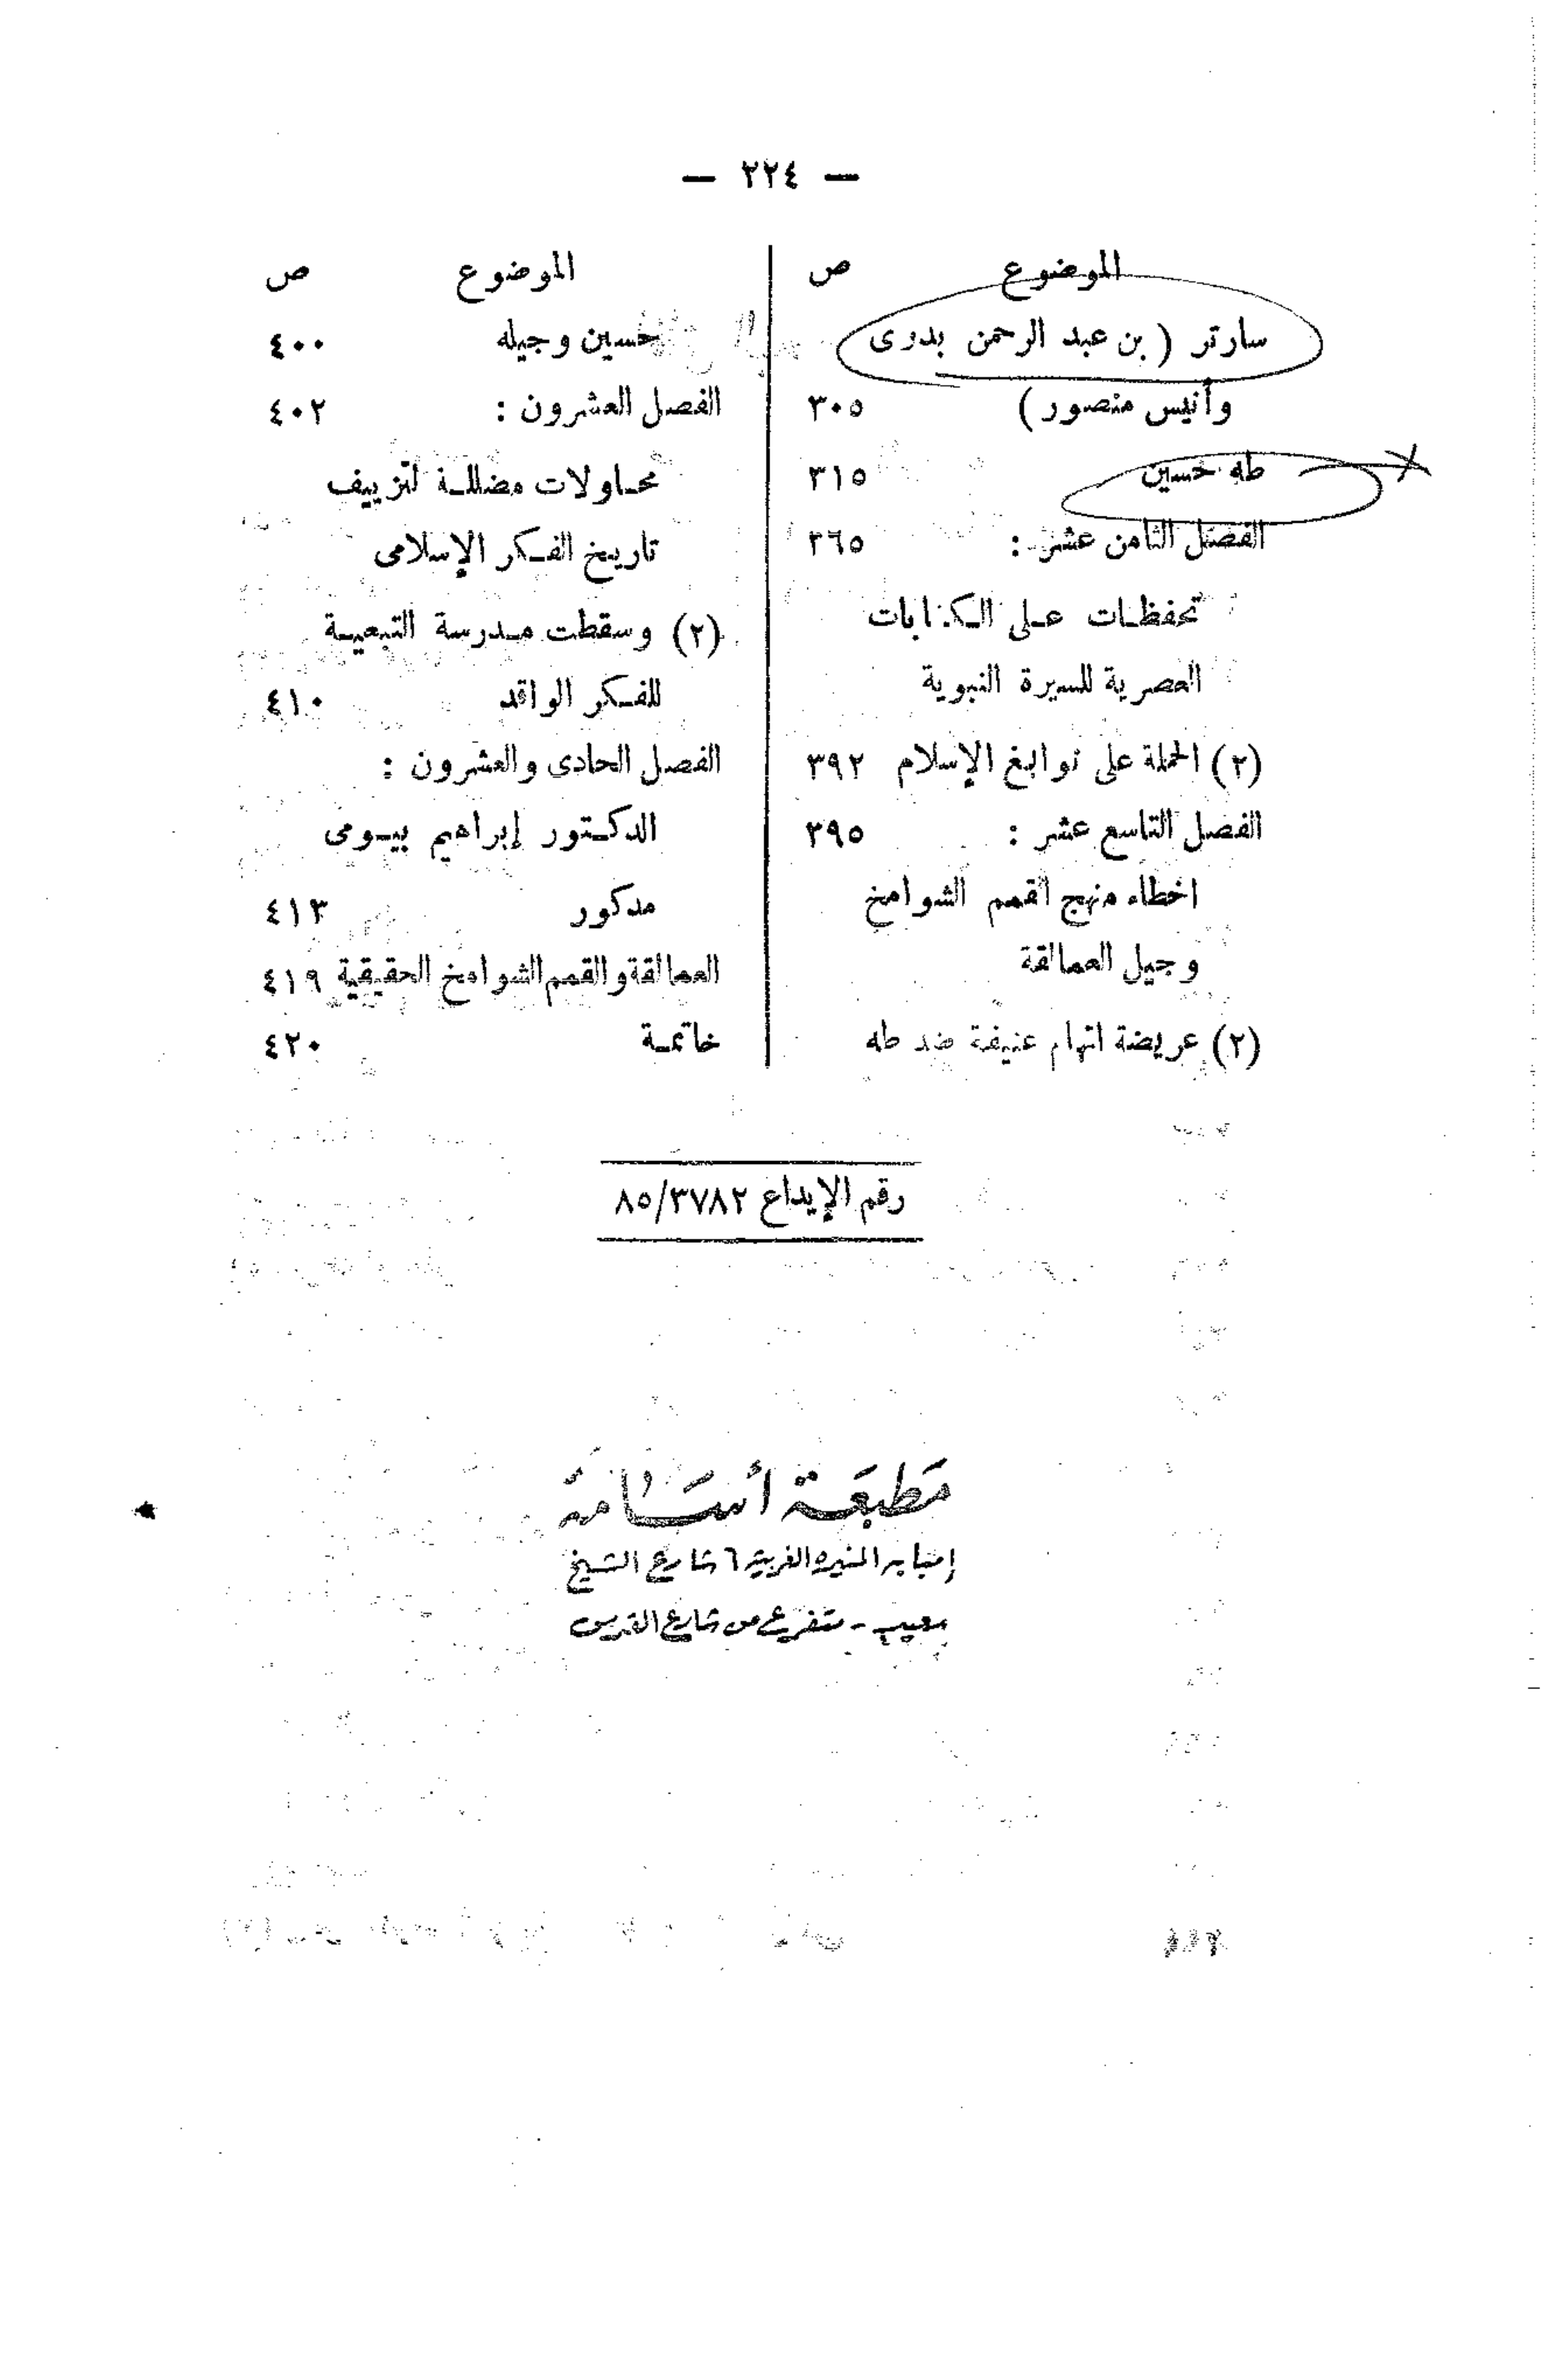 — ٢٢٤ —
الموضوع ص
سارتر ( بن عبد الرحمن بدوى
وأنيس منصور ) ٣٠٥
طه حسين ٣١٥
الفصل الثامن عشر : ٣٦٥
تحفظات على الكتابات
العصرية للسيرة النبوية
(٢) الحملة على نوابغ الإسلام ٣٩٢
الفصل التاسع عشر : ٣٩٥
اخطاء منهج القمم الشوامخ
وجيل العمالقة
(٢) عريضة اتهام عنيفة ضد طه
الموضوع ص
حسين وجيله ٤٠٠
الفصل العشرون : ٤٠٢
محاولات مضللة لتزييف
تاريخ الفكر الإسلامى
(٢) وسقطت مدرسة التبعية
للفكر الوافد ٤١٠
الفصل الحادى والعشرون :
الدكتور إبراهيم بيومى
مدكور ٤١٣
العمالقة والقمم الشوامخ الحقيقية ٤١٩
خاتمة ٤٢٠
رقم الإيداع ٨٥/٣٧٨٢
مَطبعَة أسَامَة
إمبابه المنيره الغربية ٦ شارع الشيخ
متفرع من شارع القدس